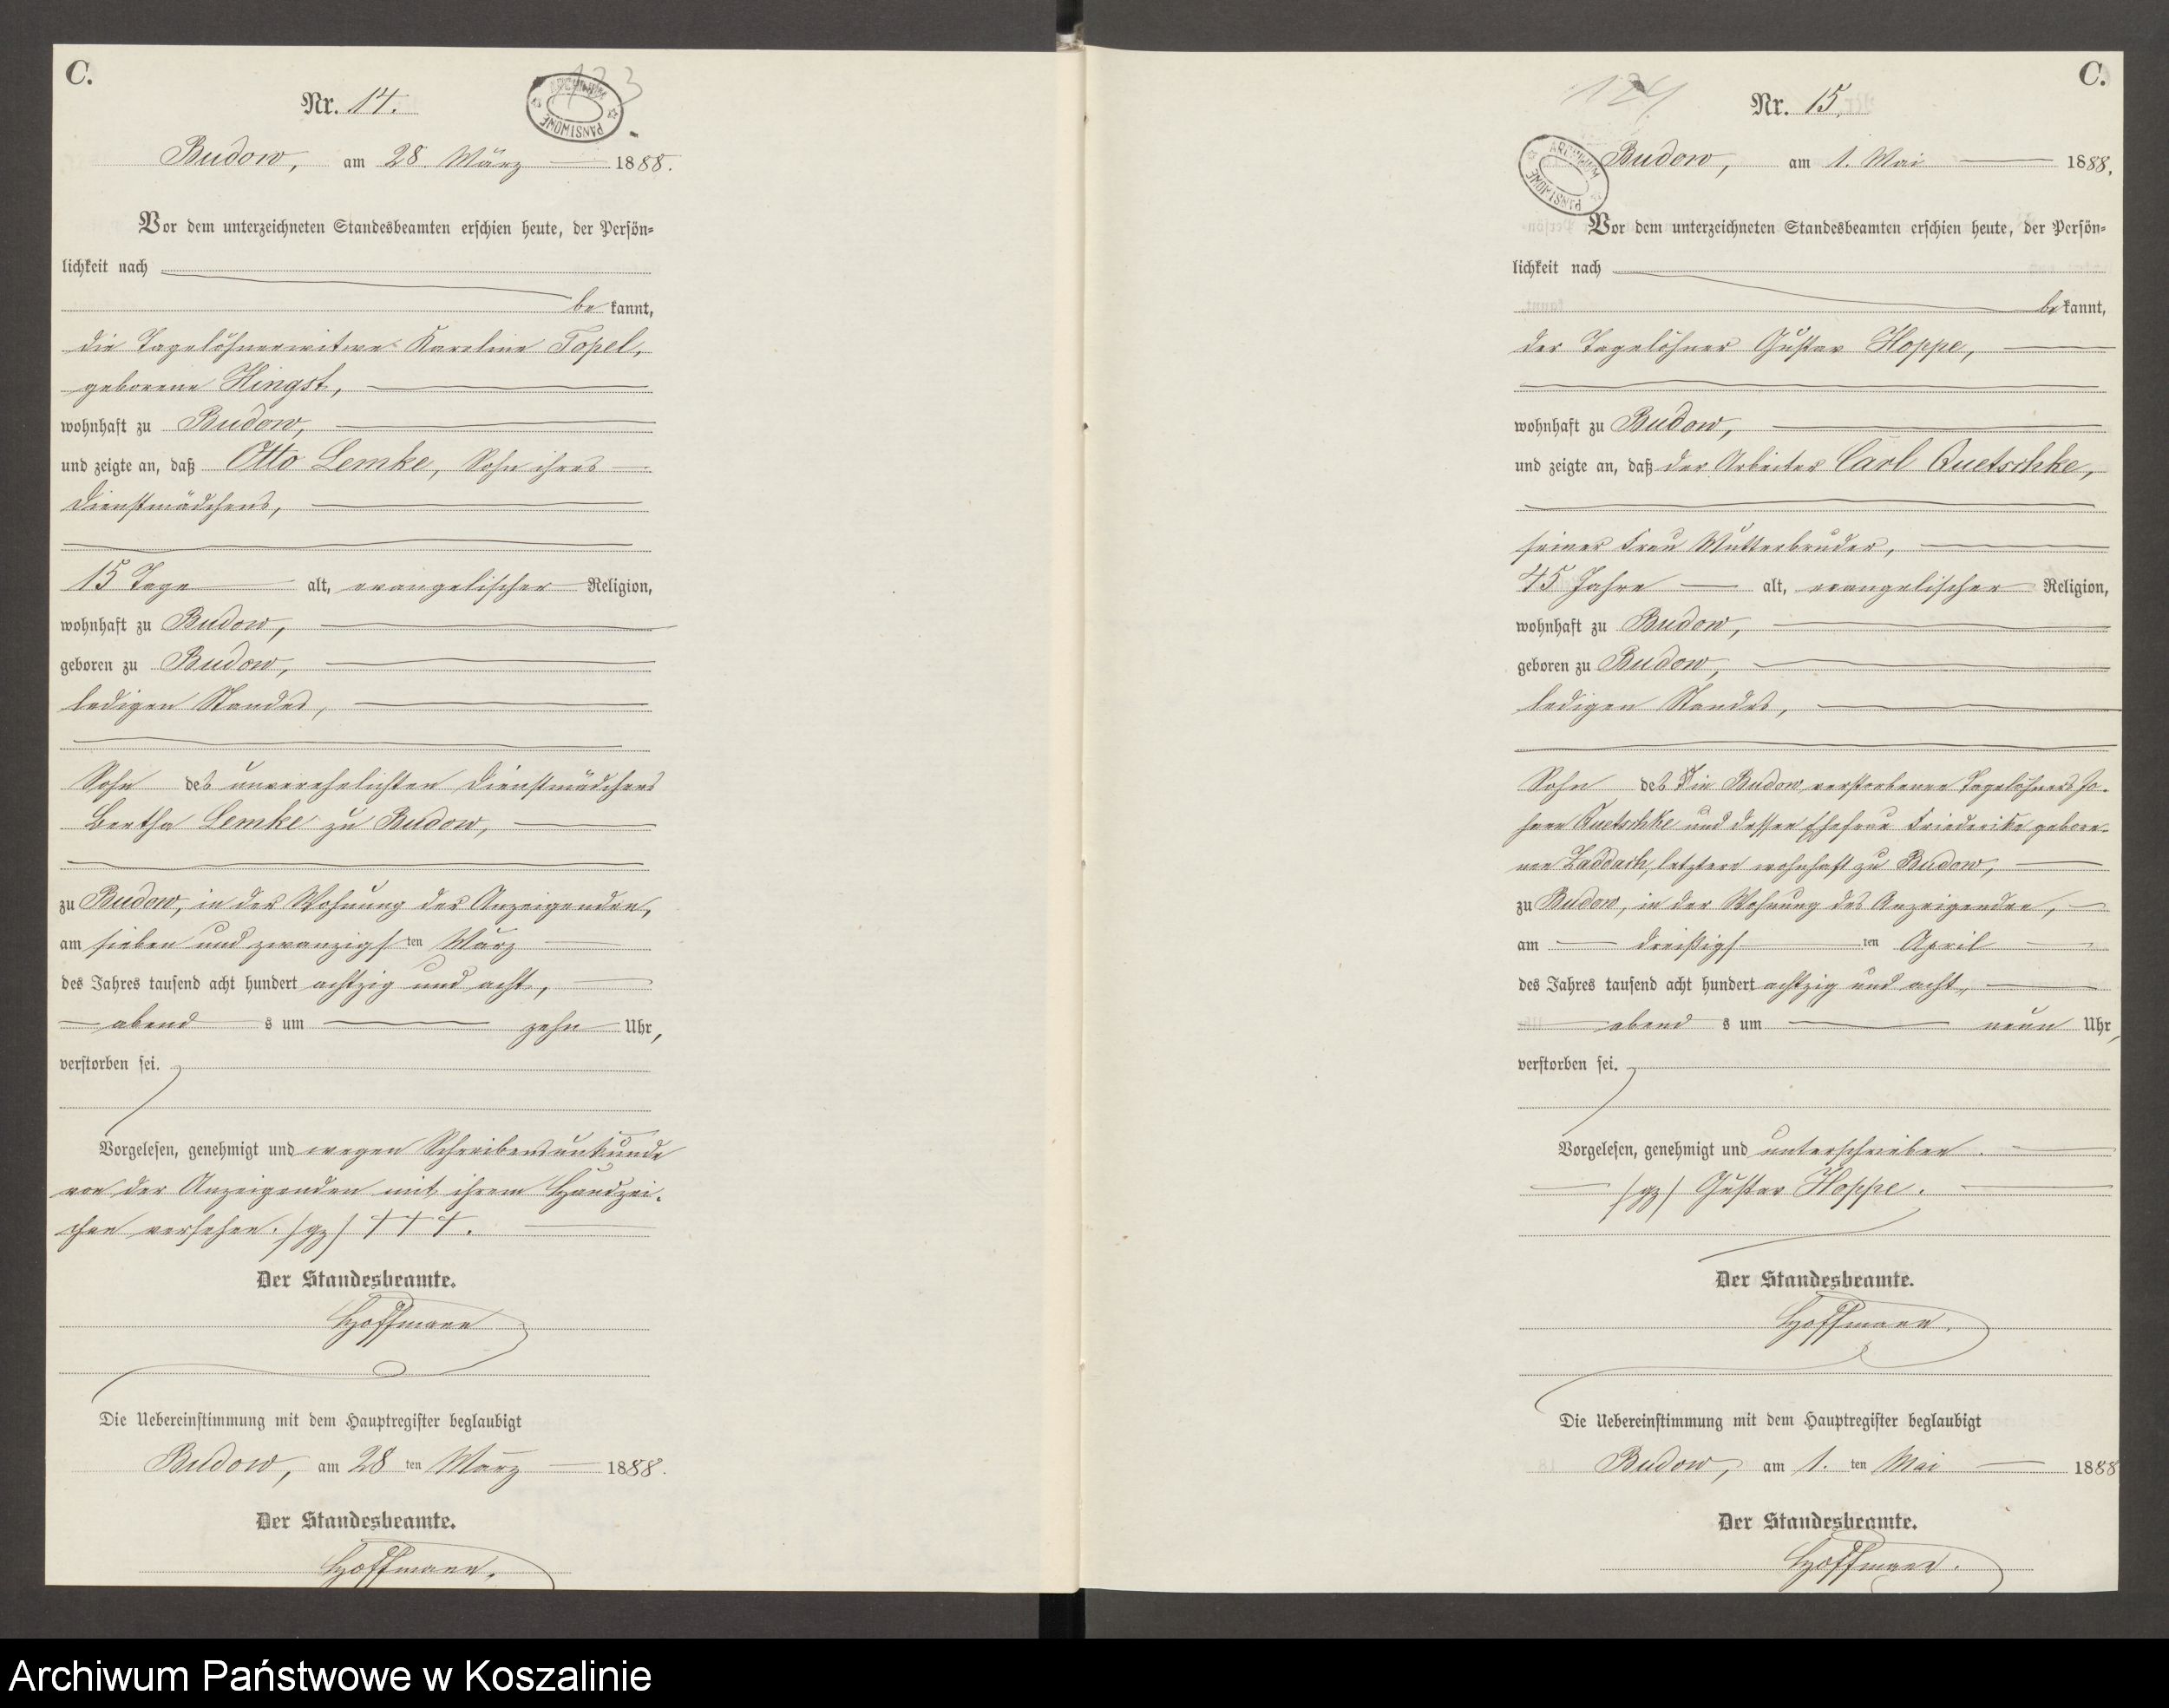 C.
Nr. 14.
123
ARCHIWUM PAŃSTWOWE
Budow, am 28. März 1888.
Vor dem unterzeichneten Standesbeamten erschien heute, der Persön=
lichkeit nach
be kannt,
die Tagelöhnerwitwe Karoline Topel,
geborene Hingst,
wohnhaft zu Budow,
und zeigte an, daß Otto Lemke, Sohn ihres
Dienstmädchens,
15 Tage alt, evangelischer Religion,
wohnhaft zu Budow,
geboren zu Budow,
ledigen Standes,
Sohn des unverehelichten Dienstmädchens
Bertha Lemke zu Budow,
zu Budow, in der Wohnung der Anzeigenden,
am sieben und zwanzigsten März
des Jahres tausend acht hundert achtzig und acht,
abend s um zehn Uhr,
verstorben sei.
Vorgelesen, genehmigt und wegen Schreibensunkunde
von der Anzeigenden mit ihrem Handzei-
chen versehen. /gz/ +++.
Der Standesbeamte.
Hoffmann
Die Uebereinstimmung mit dem Hauptregister beglaubigt
Budow, am 28 ten März 1888.
Der Standesbeamte.
Hoffmann.
C.
124
Nr. 15.
ARCHIWUM PAŃSTWOWE
Budow, am 1. Mai 1888.
Vor dem unterzeichneten Standesbeamten erschien heute, der Persön=
lichkeit nach
be kannt,
der Tagelöhner Gustav Hoppe,
wohnhaft zu Budow,
und zeigte an, daß der Arbeiter Carl Quetschke,
seiner Frau Mutterbruder,
45 Jahre alt, evangelischer Religion,
wohnhaft zu Budow,
geboren zu Budow,
ledigen Standes,
Sohn des in Budow verstorbenen Tagelöhners Jo-
hann Quetschke und dessen Ehefrau Friederike gebore-
nen Zaddach, letztere wohnhaft zu Budow,
zu Budow, in der Wohnung des Anzeigenden,
am dreißigsten April
des Jahres tausend acht hundert achtzig und acht,
abend s um neun Uhr,
verstorben sei.
Vorgelesen, genehmigt und unterschrieben.
/gz/ Gustav Hoppe.
Der Standesbeamte.
Hoffmann.
Die Uebereinstimmung mit dem Hauptregister beglaubigt
Budow, am 1. ten Mai 1888
Der Standesbeamte.
Hoffmann.
Archiwum Państwowe w Koszalinie